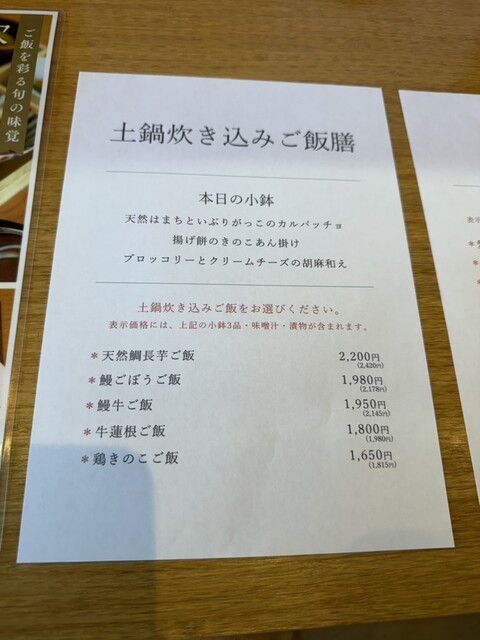 ご飯を彩る旬の味覚
土鍋炊き込みご飯膳
本日の小鉢
天然はまちといぶりがっこのカルパッチョ
揚げ餅のきのこあん掛け
ブロッコリーとクリームチーズの胡麻和え
土鍋炊き込みご飯をお選びください。
表示価格には、上記の小鉢3品・味噌汁・漬物が含まれます。
*天然鯛長芋ご飯 2,200円
(2,420円)
*鰻ごぼうご飯 1,980円
(2,178円)
*鰻牛ご飯 1,950円
(2,145円)
*牛蓮根ご飯 1,800円
(1,980円)
*鶏きのこご飯 1,650円
(1,815円)
表示